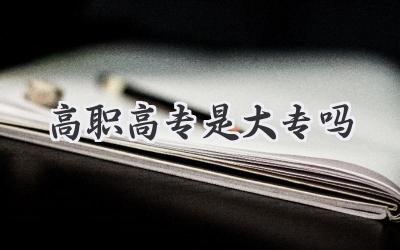 高职高专是大专吗